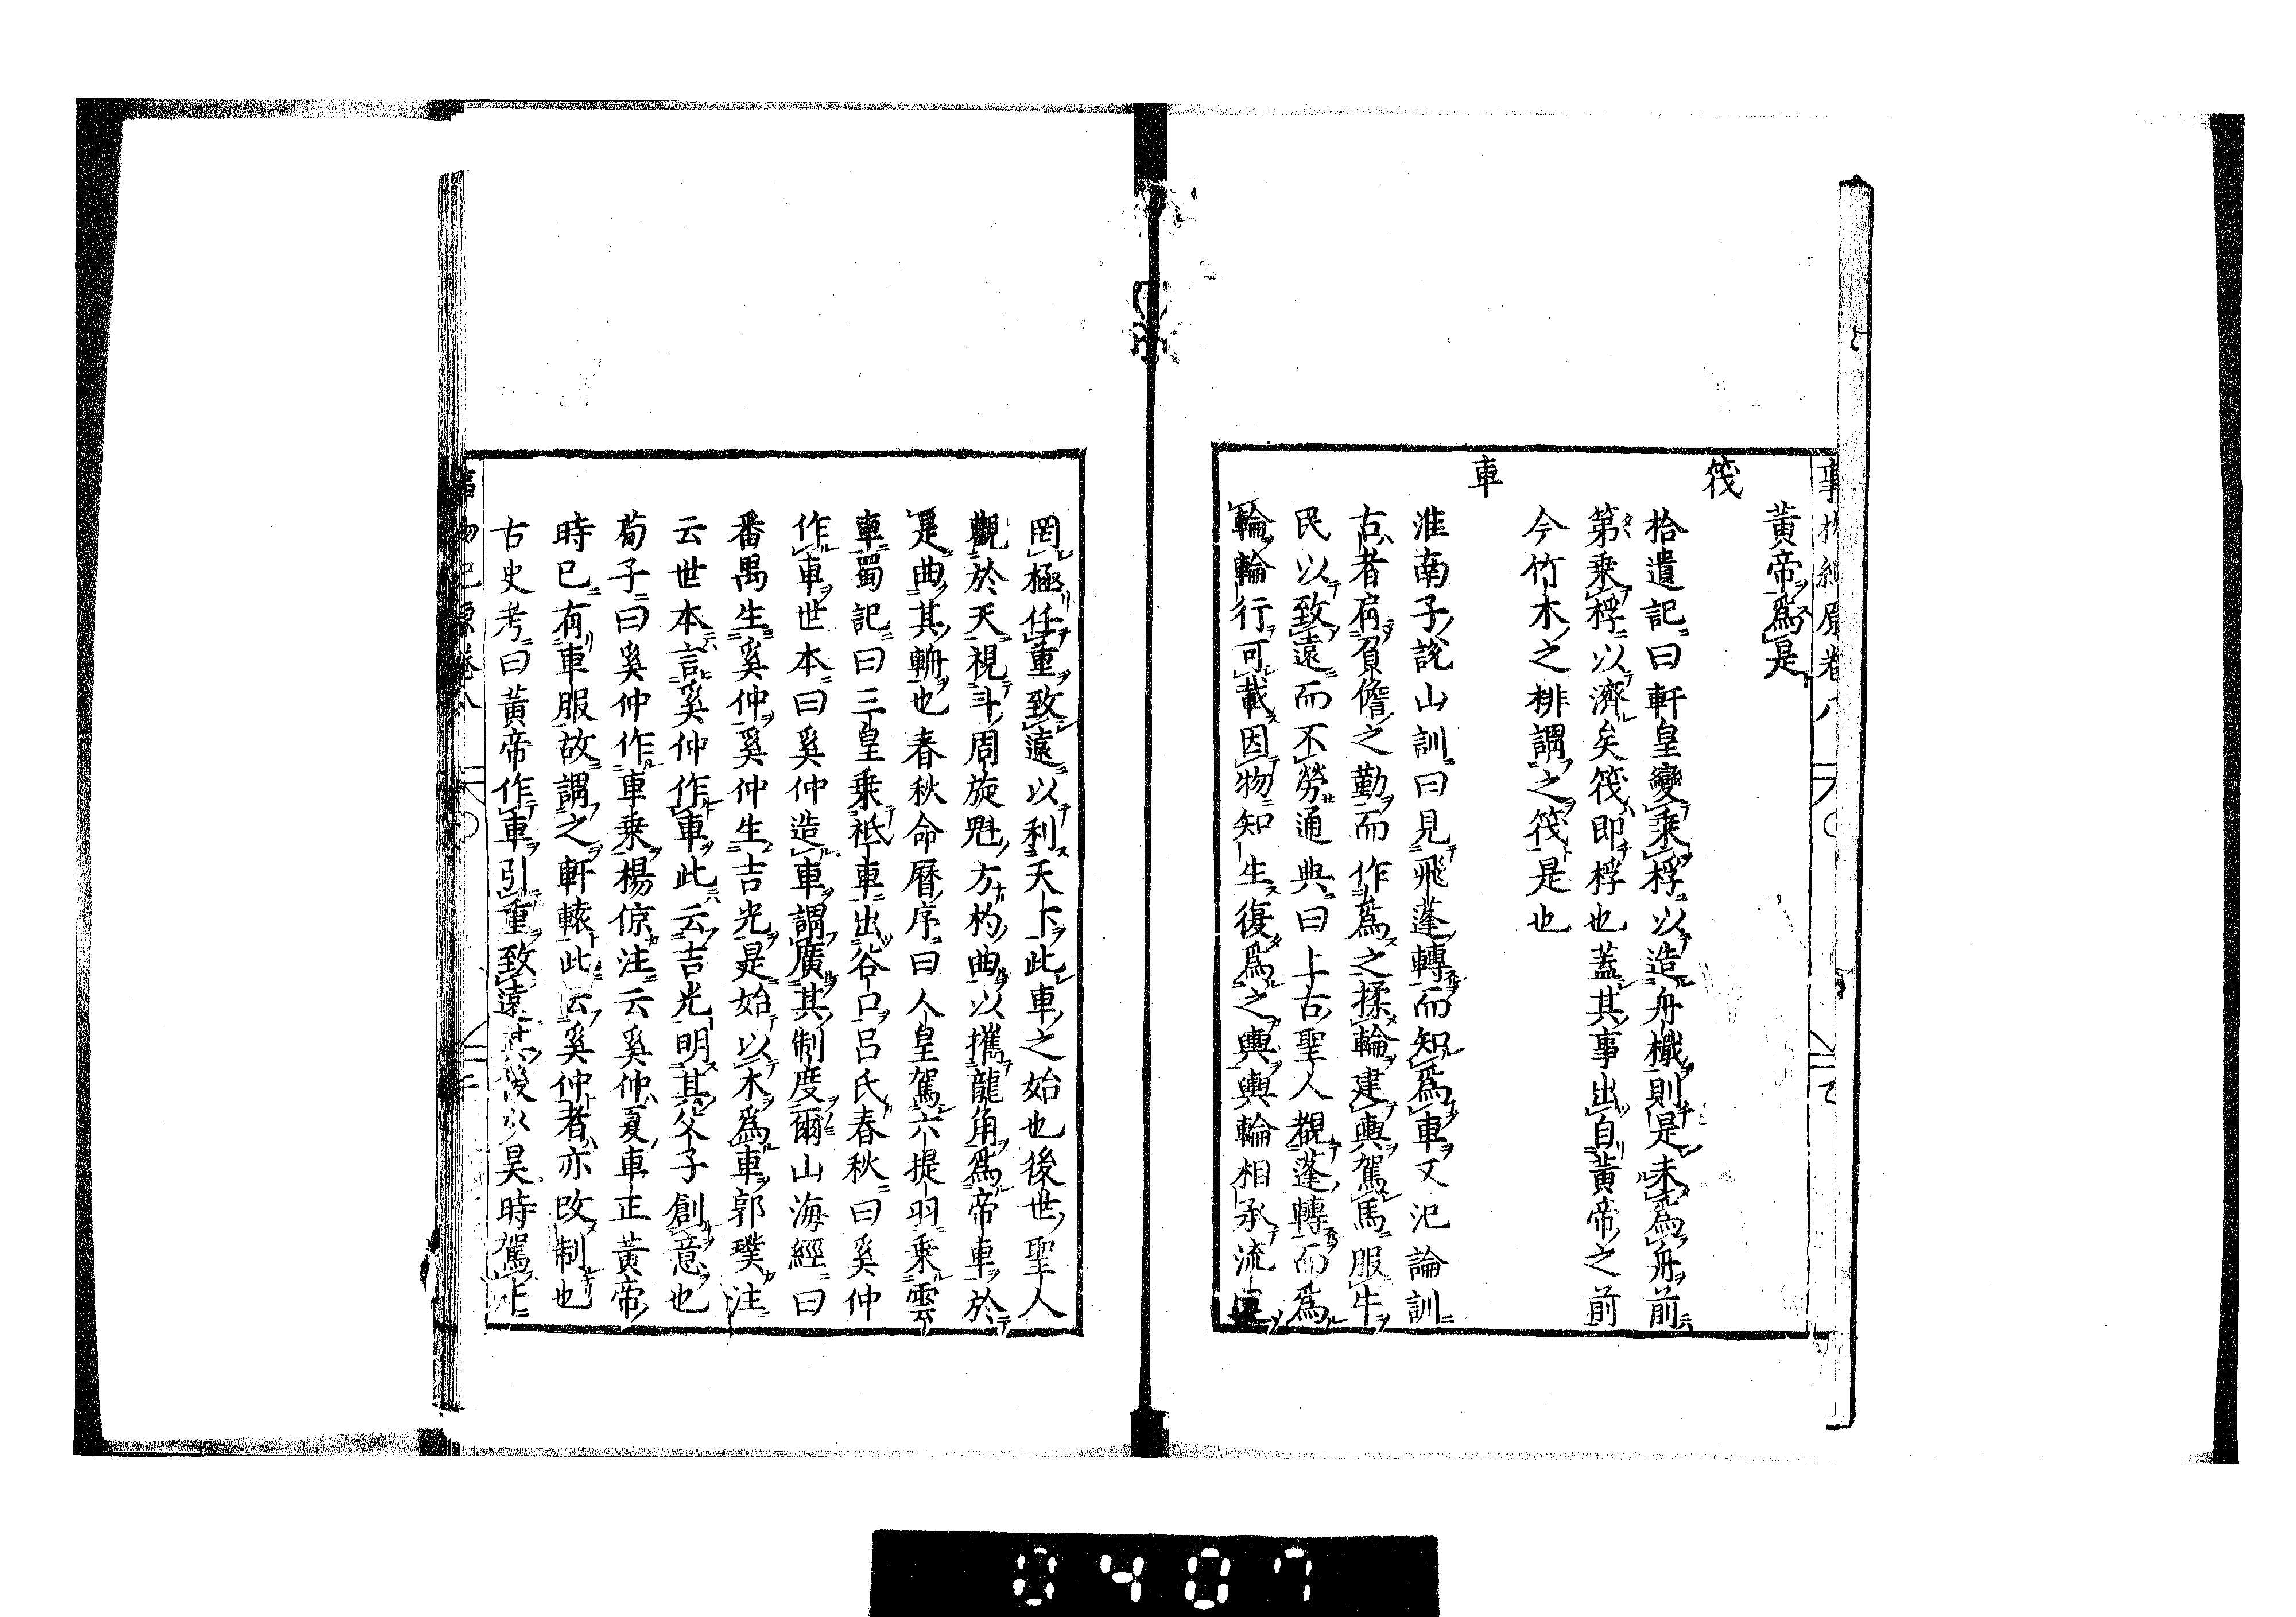 事物紀原卷八
黃帝爲是
筏
拾遺記曰軒皇變乘桴以造舟檝則是未爲舟前
第乘桴以濟矣筏即桴也蓋其事出自黃帝之前
今竹木之排謂之筏是也
車
淮南子說山訓曰見飛蓬轉而知爲車又氾論訓
古者肩負儋之勤而作爲之揉輪建輿駕馬服牛
民以致遠而不勞通典曰上古聖人觀蓬轉而爲
輪輪行可載因物知生復爲之輿輿輪相承流運
罔極任重致遠以利天下此車之始也後世聖人
觀於天視斗周旋魁方杓曲以攜龍角爲帝車於
是曲其輈也春秋命曆序曰人皇駕六提羽乘雲
車蜀記曰三皇乘祗車出谷口呂氏春秋曰奚仲
作車世本曰奚仲造車謂廣其制度爾山海經曰
番禺生奚仲奚仲生吉光是始以木爲車郭璞注
云世本言奚仲作車此云吉光明其父子創意也
荀子曰奚仲作車乘楊倞注云奚仲夏車正黃帝
時已有車服故謂之軒轅此云奚仲者亦改制也
古史考曰黃帝作車引重致遠其後以昊時駕
事物紀原卷八
0407